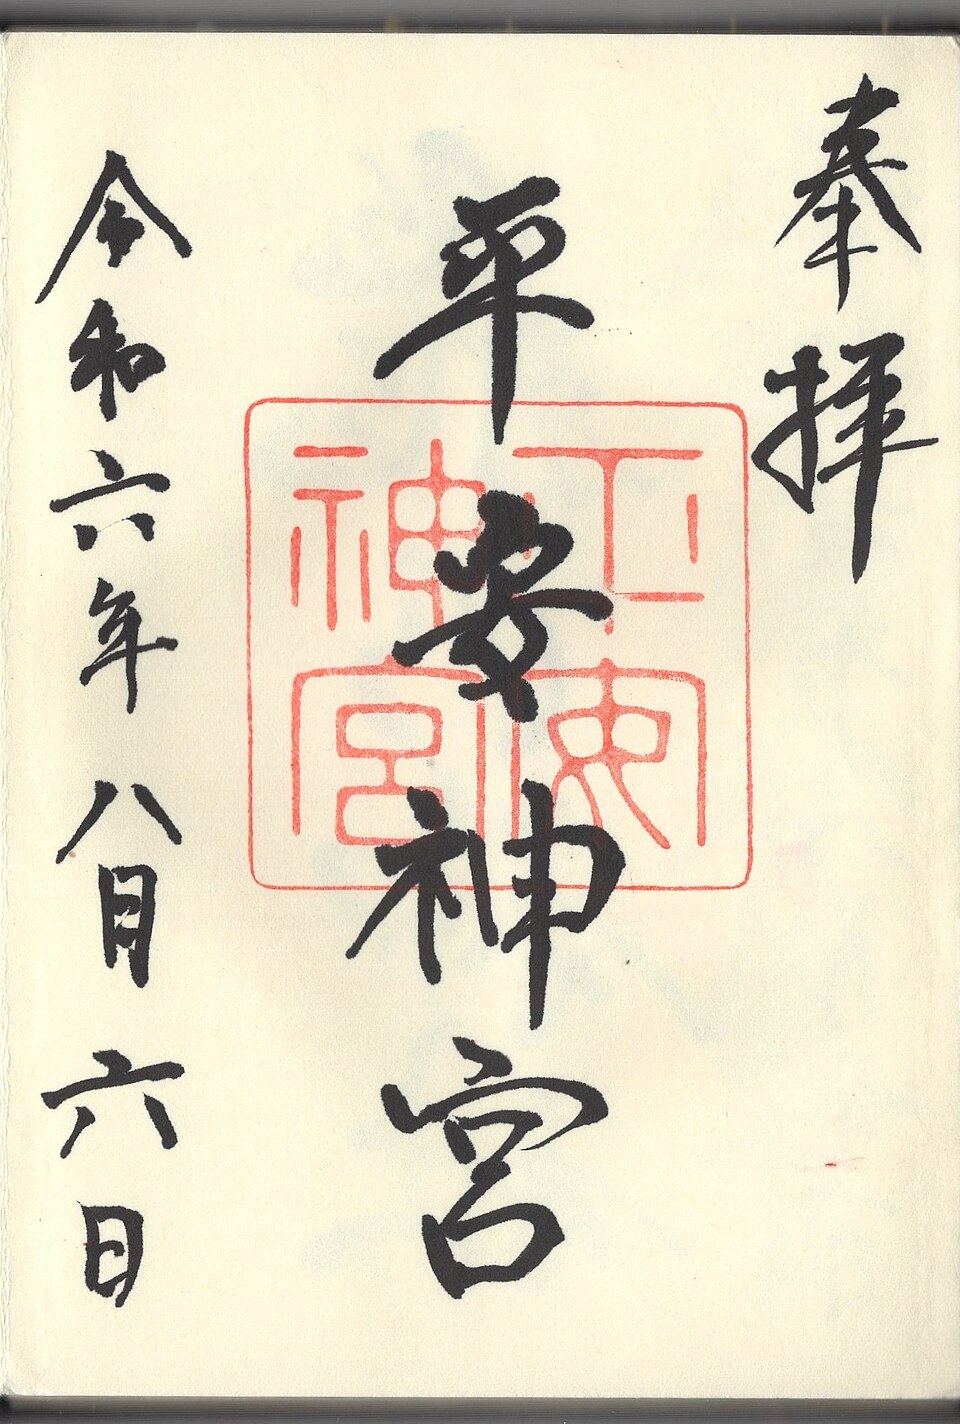 奉拝
平安神宮
平安神宮
令和六年八月六日